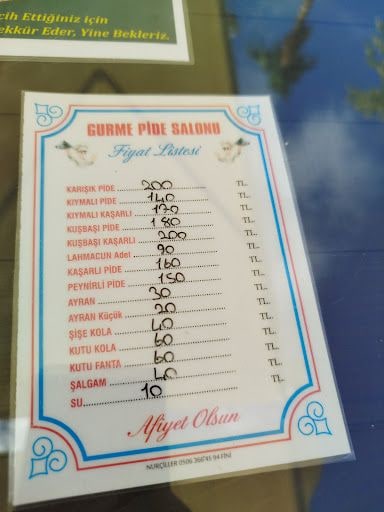 cih Ettiğiniz için
ekkür Eder, Yine Bekleriz.
GURME PİDE SALONU
Fiyat Listesi
KARIŞIK PİDE 200 TL.
KIYMALI PİDE 140 TL.
KIYMALI KAŞARLI 170 TL.
KUŞBAŞI PİDE 180 TL.
KUŞBAŞI KAŞARLI 200 TL.
LAHMACUN Adet 90 TL.
KAŞARLI PİDE 160 TL.
PEYNİRLİ PİDE 150 TL.
AYRAN 30 TL.
AYRAN Küçük 20 TL.
ŞİŞE KOLA 40 TL.
KUTU KOLA 60 TL.
KUTU FANTA 60 TL.
ŞALGAM 40 TL.
SU 10 TL.
Afiyet Olsun
NURÇİLLER 0506